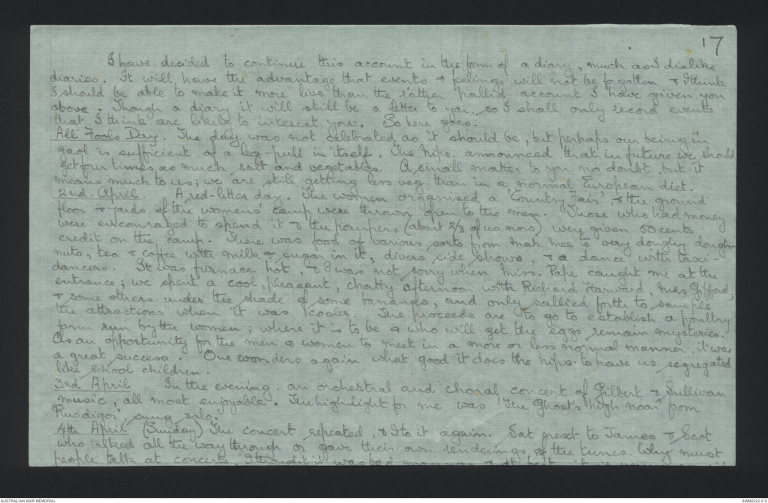 17
I have decided to continue this account in the form of a diary, much as I dislike
diaries. It will have the advantage that events & feelings will not be forgotten & I think
I should be able to make it more live than the rather pall'd account I have given you
above. Though a diary it will still be a letter to you, so I shall only record events
that I think are likely to interest you. So here goes.
All Fools Day. The day was not celebrated as it should be, but perhaps our being in
gaol is sufficient of a leg-pull in itself. The Nips. announced that in future we should
get four times as much salt and vegetables. A small matter to you no doubt but it
means much to us; we are still getting less veg. than in a normal European diet.
2nd. April. A red-letter day. The women organised a Country Fair & the ground
floor & yards of the women's camp were thrown open to the men. Those who had money
were encouraged to spend it & the paupers (about 2/3 of us now) were given 50 cents
credit on the camp. There was food of various sorts from mah mee to very doughy dough-
nuts, tea & coffee with milk & sugar in it, divers side shows, & a dance with taxi-
dancers. It was furnace hot, & I was not sorry when Miss. Pope caught me at the
entrance; we spent a cool, pleasant, chatty afternoon with Richard Harward, Mrs Gifford,
& some others under the shade of some bananas, and only sallied forth to sample
the attractions when it was cooler. The proceeds are to go to establish a poultry
farm run by the women; where it is to be & who will get the eggs remain mysteries.
As an opportunity for the men & women to meet in a more or less normal manner, it was
a great success. One wonders again what good it does the nips. to have us segregated
like school children.
3rd April In the evening. an orchestral and choral concert of Gilbert & Sullivan
music, all most enjoyable. The highlight for me was 'The Ghost's high noon' from
'Ruddigo', sung solo.
4th April (Sunday) The concert repeated & I to it again. Sat next to James & Scot
who talked all the way through or gave their own renderings of the tunes. Why must
people talk at concerts, I thought it was bad manners
AUSTRALIAN WAR MEMORIAL